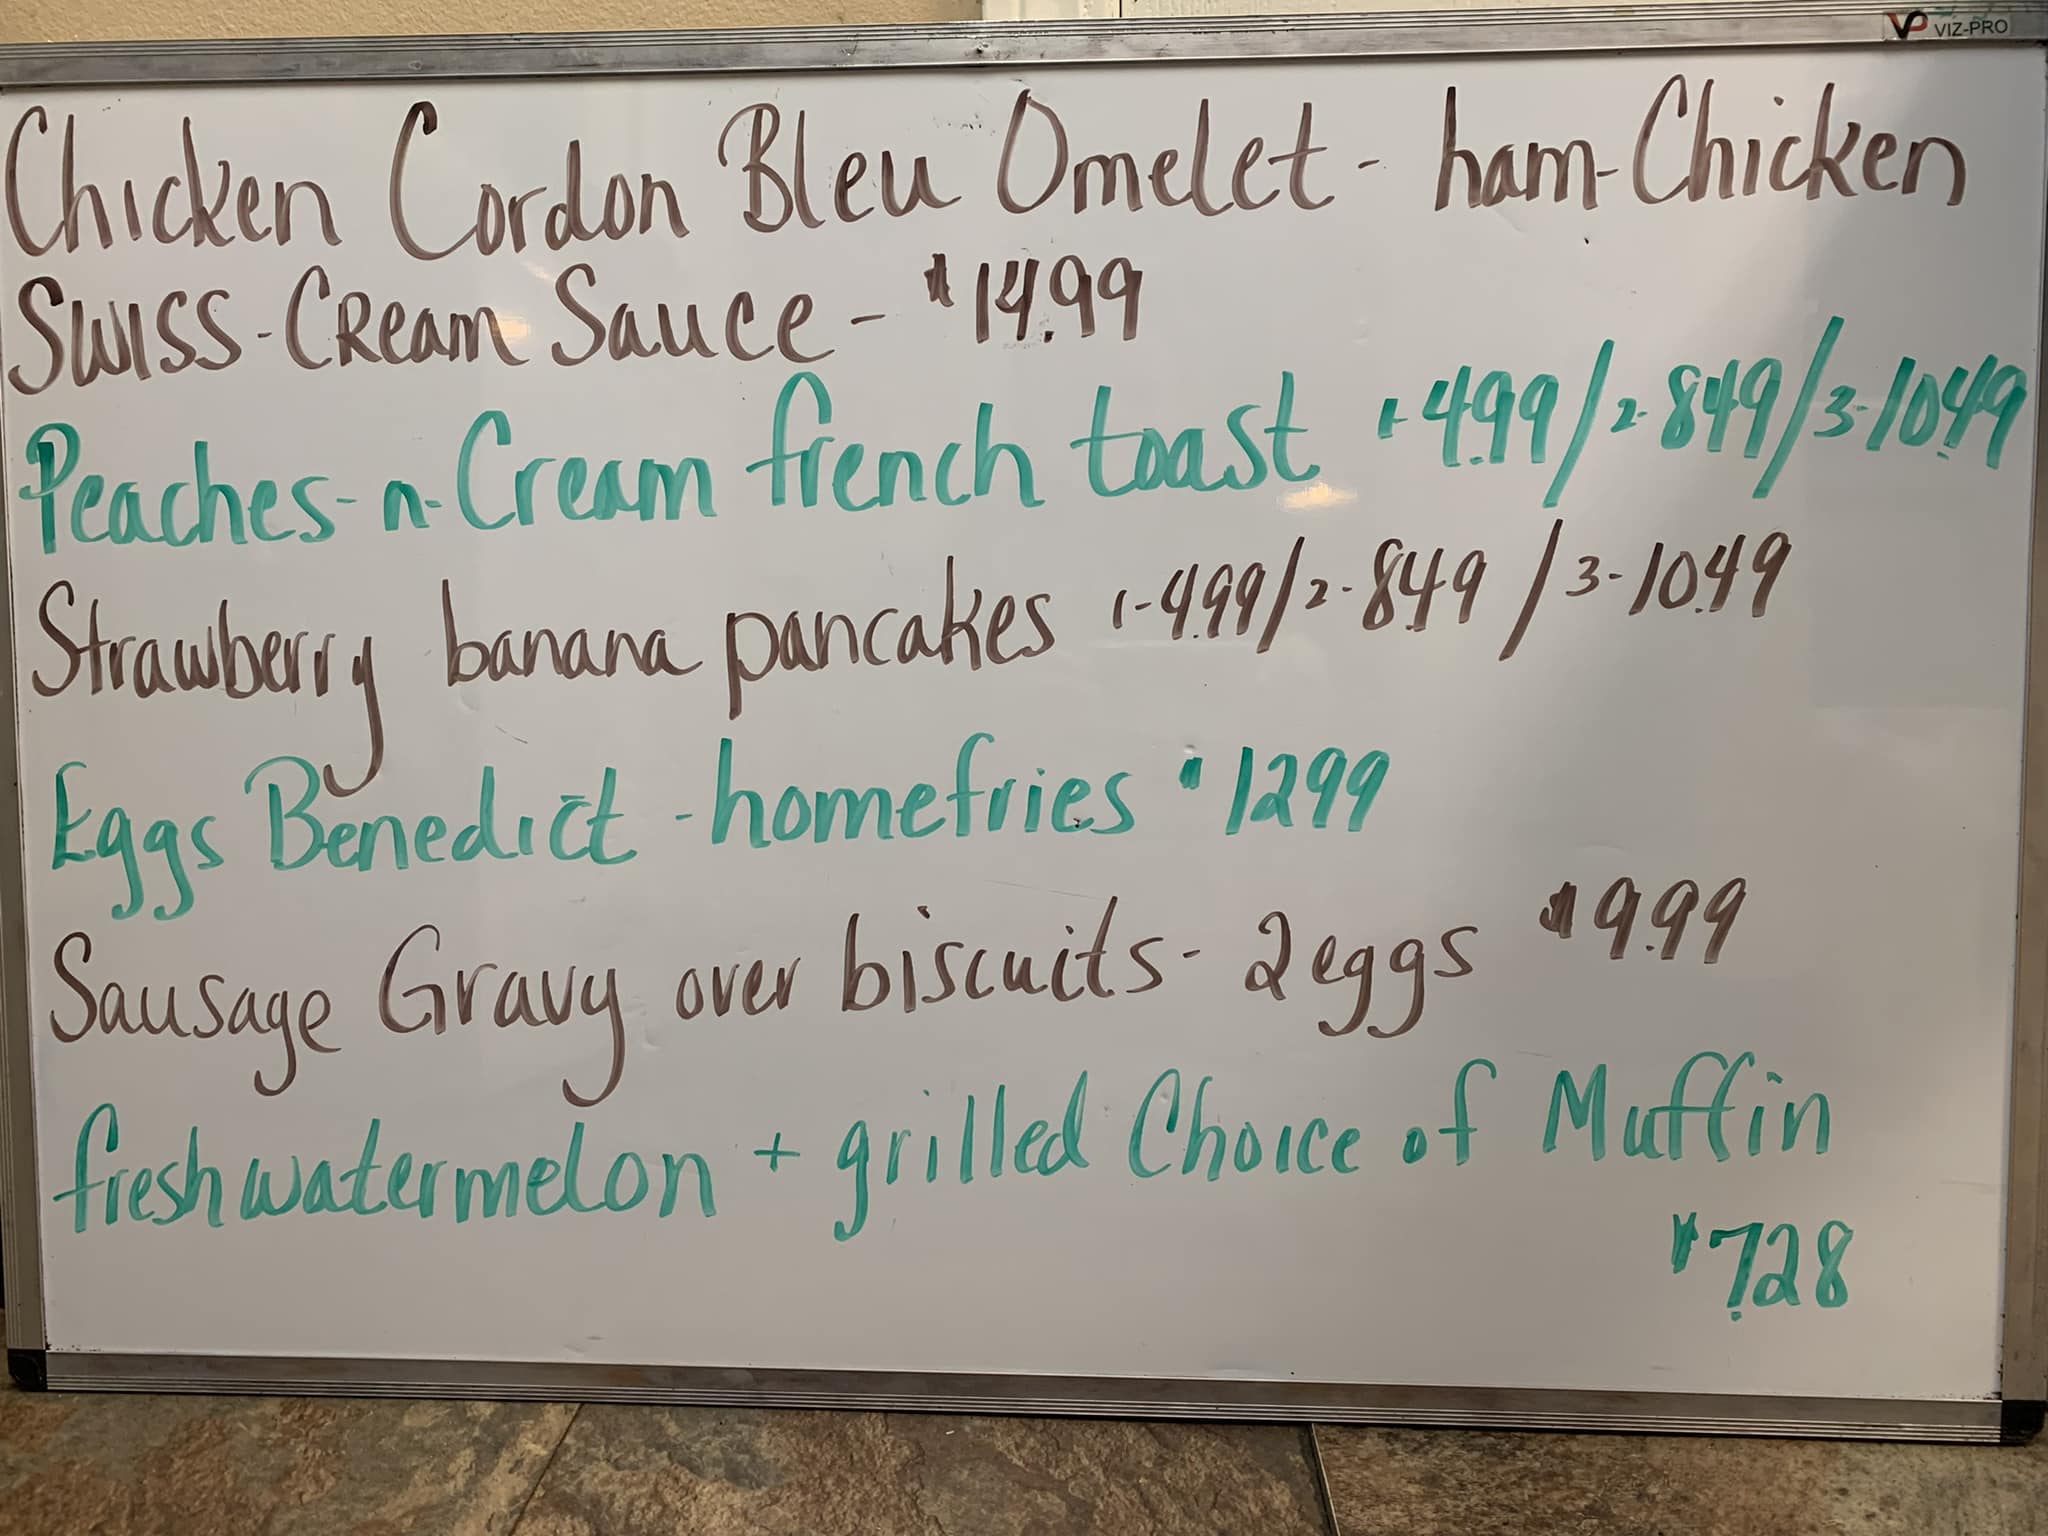 VP VIZ-PRO
Chicken Cordon Bleu Omelet - ham-Chicken
Swiss-Cream Sauce - $14.99
Peaches-n-Cream french toast 1-4.99/2-8.49/3-10.49
Strawberry banana pancakes 1-4.99/2-8.49/3-10.49
Eggs Benedict - homefries $1299
Sausage Gravy over biscuits - 2 eggs $9.99
fresh watermelon + grilled Choice of Muffin
$7.28